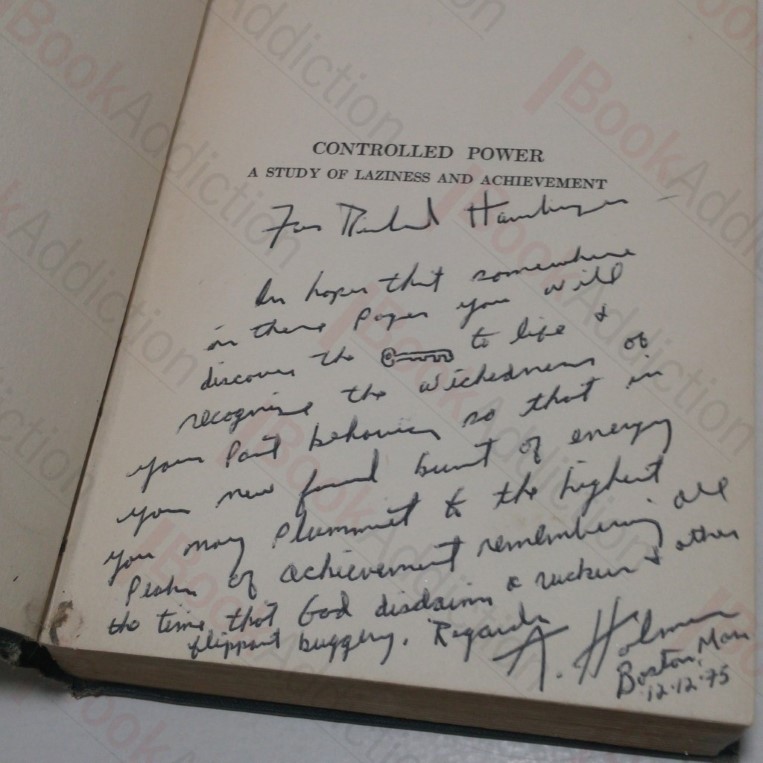 CONTROLLED POWER
A STUDY OF LAZINESS AND ACHIEVEMENT
For Richard Hamburger
In hopes that somewhere
in these pages you will
discover the to life &
recognize the wickedness of
your past behavior so that in
your new found burst of energy
you may plummet to the highest
Peaks of achievement remembering all
the time that God disdains a ruckus & other
flippant buggery. Regards
A. Holman
Boston, Mass
12.12.75
BookAddiction